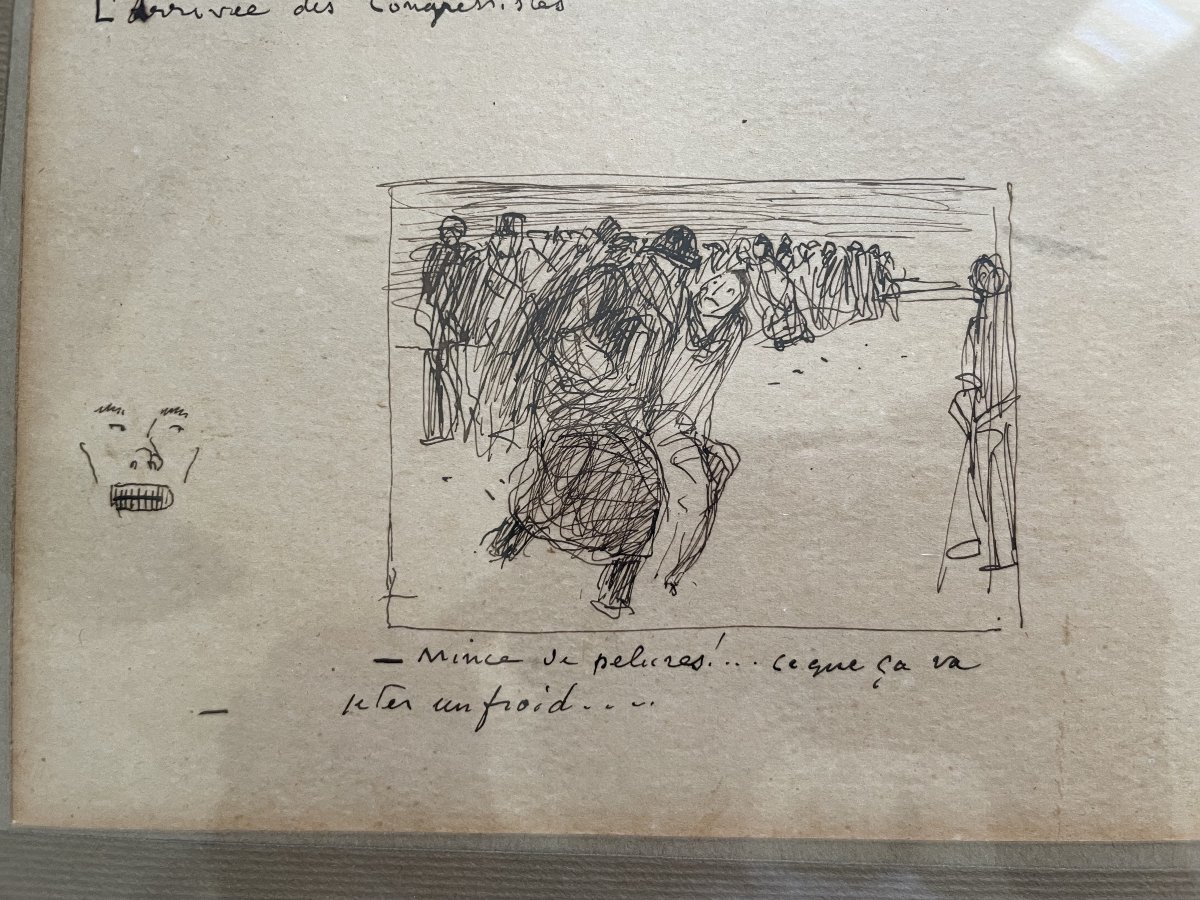 L'Arrivée des Congressistes
— Mince de pelures!... ce que ça va
jeter un froid....